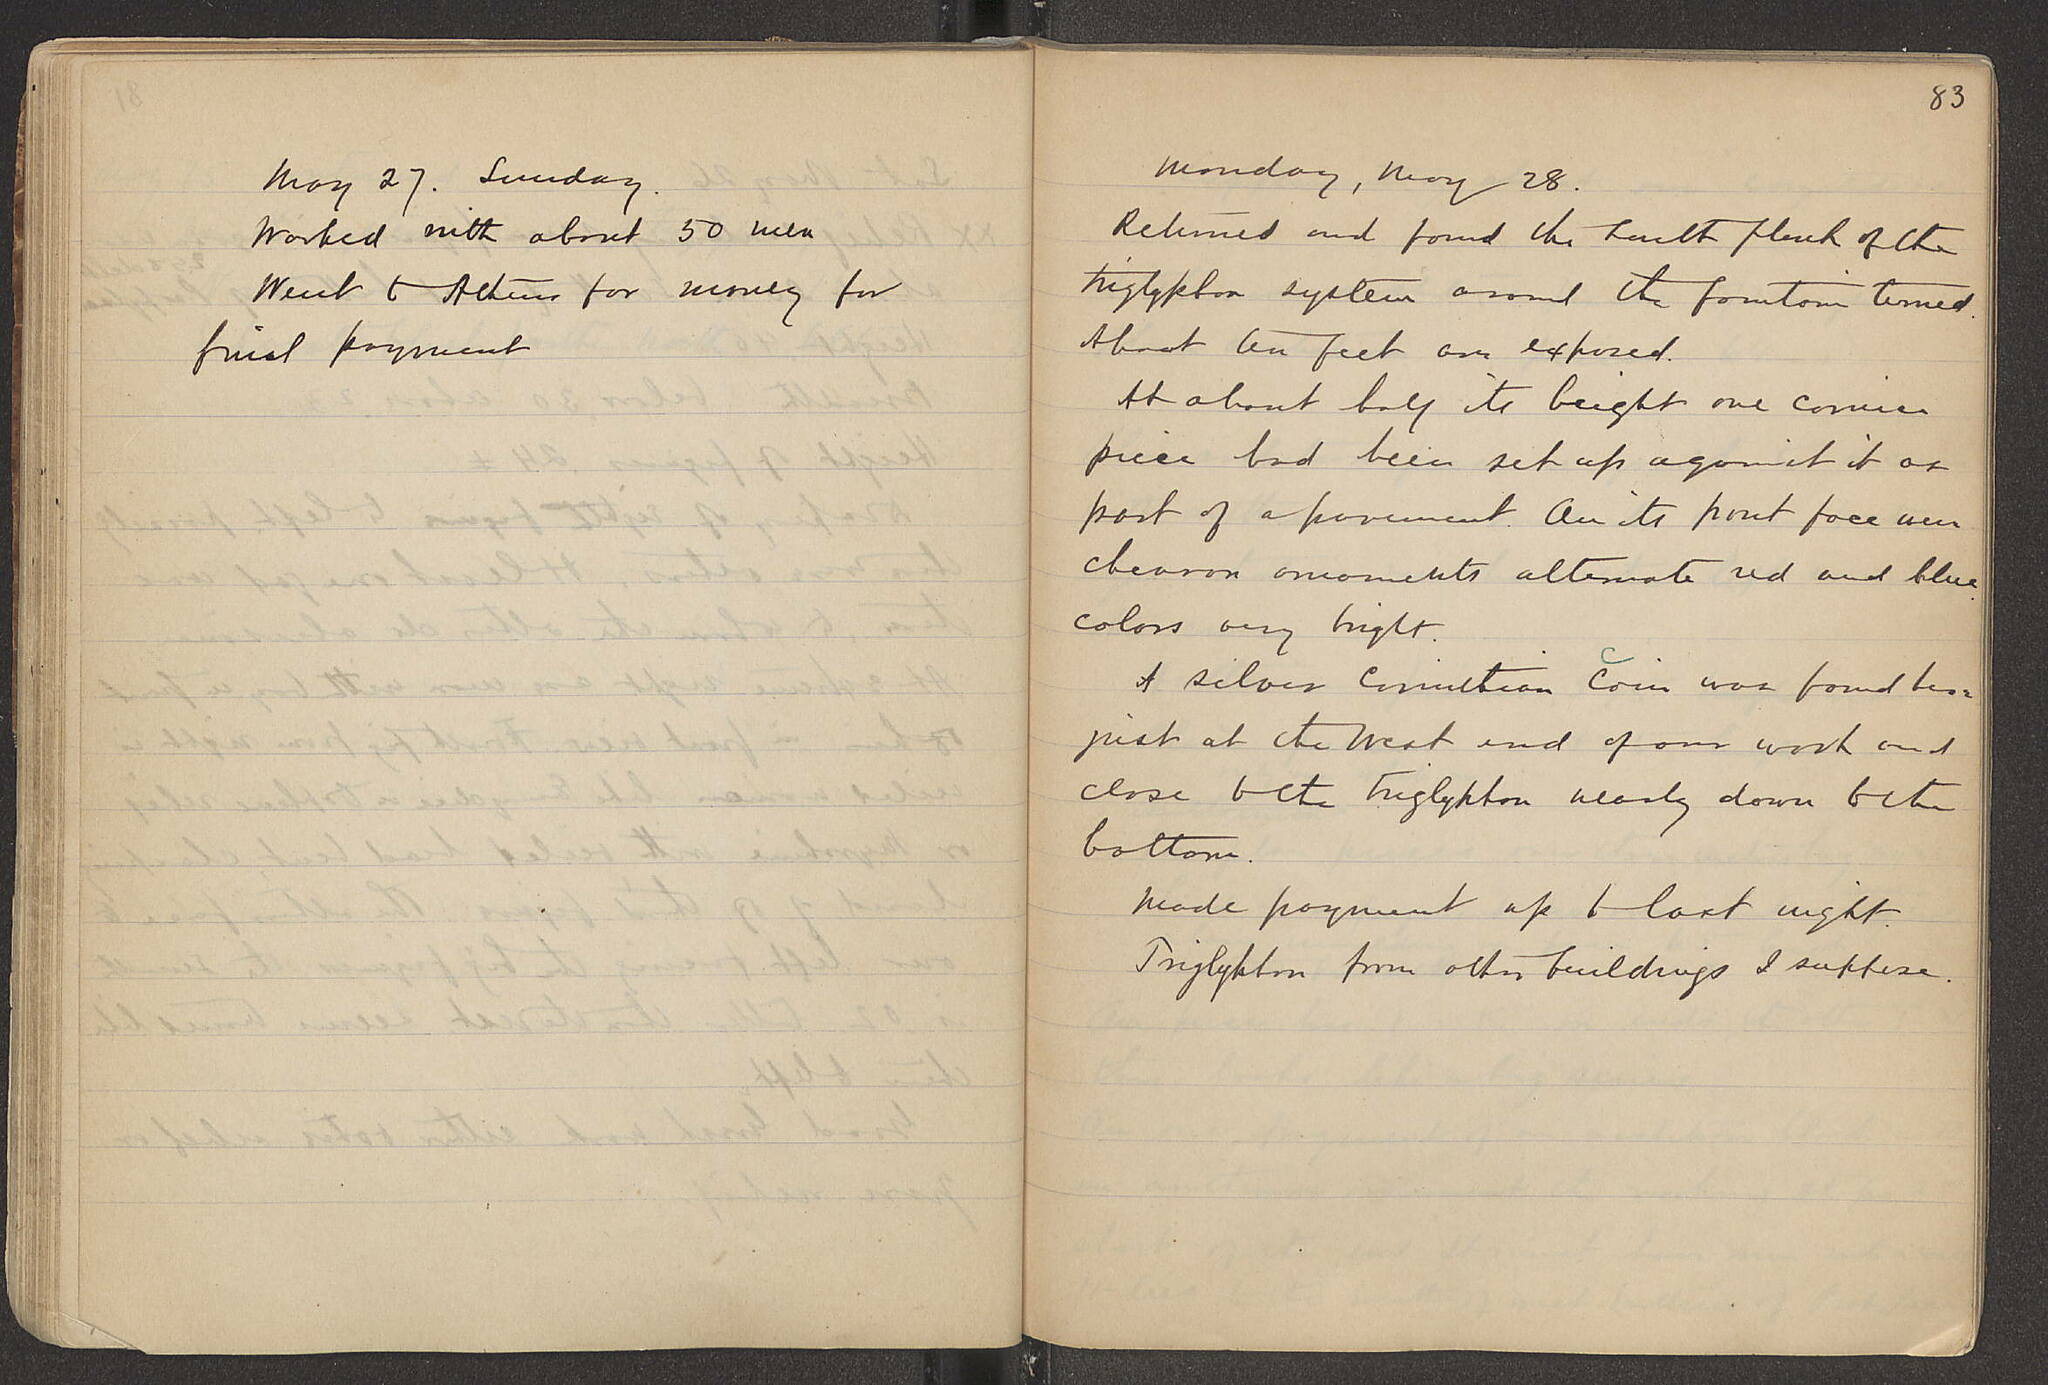 May 27. Sunday.
Worked with about 50 men
Went to Athens for money for
final payment
83
Monday, May 28.
Returned and found the south flank of the
triglyphon system around the fountain turned.
About ten feet are exposed.
At about half its height one cornice
piece had been set up against it as
part of a pavement. On its front face were
chevron ornaments alternate red and blue.
colors very bright.
A silver Corinthian Coin was found here
just at the West end of our work and
close to the triglyphon nearly down to the
bottom.
Made payment up to last night.
Triglyphon from other buildings I suppose.